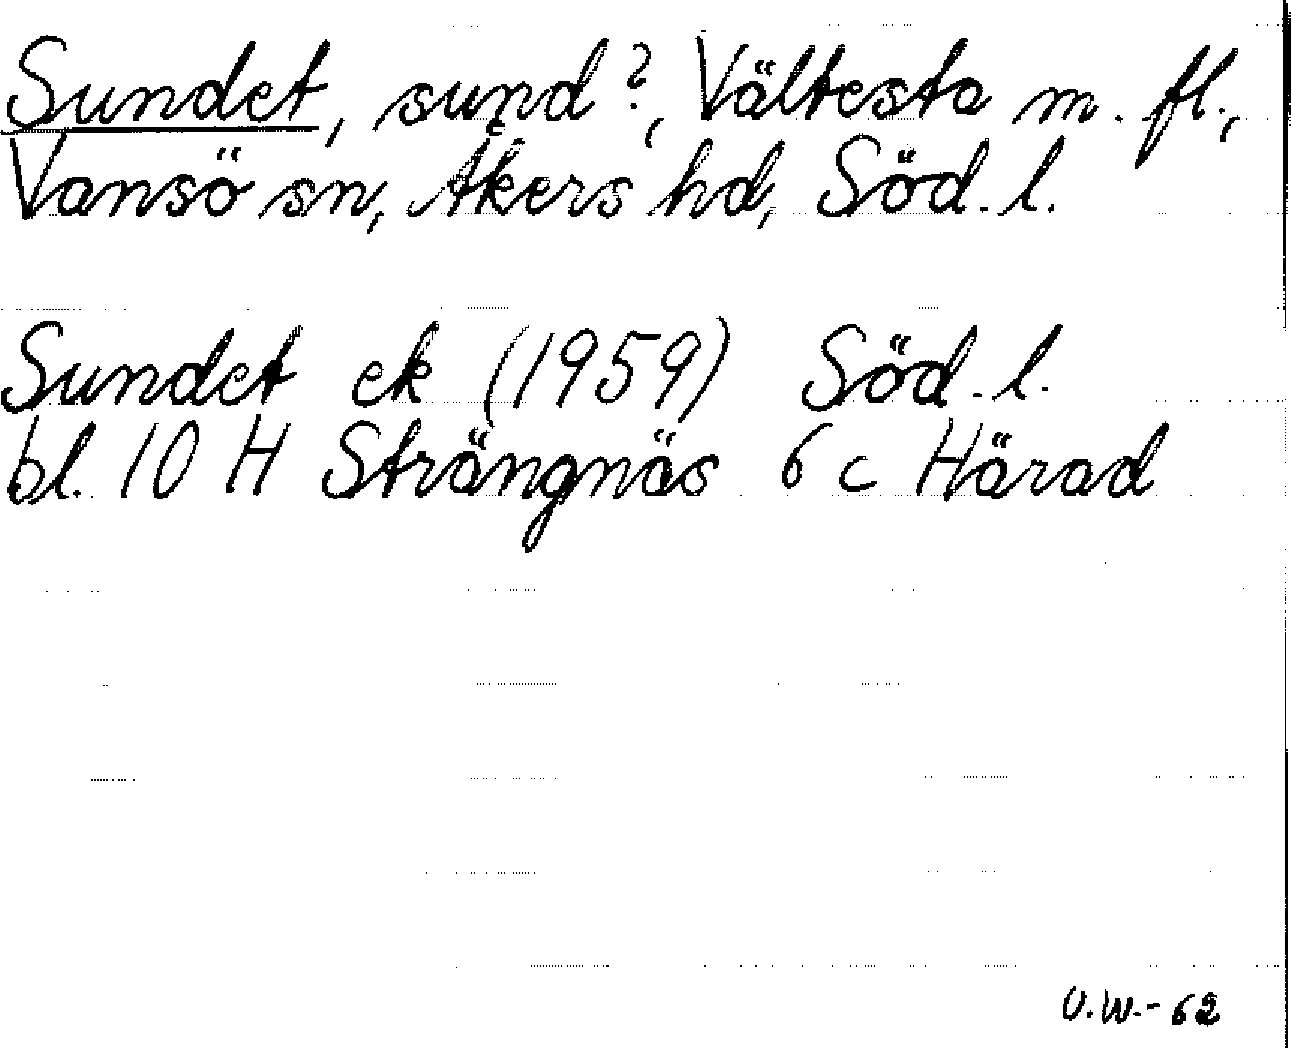 Sundet, sund?, Vältesta m. fl.,
Vansö sn, Åkers hd, Söd. l.
Sundet ek (1959) Söd. l.
bl. 10 H Strängnäs 6 c Härad
U.W.-62